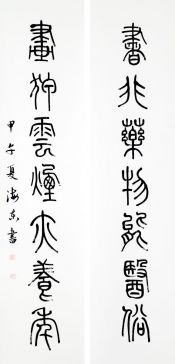 書非藥物能醫俗
畫抑雲煙亦養年
甲午夏海東書